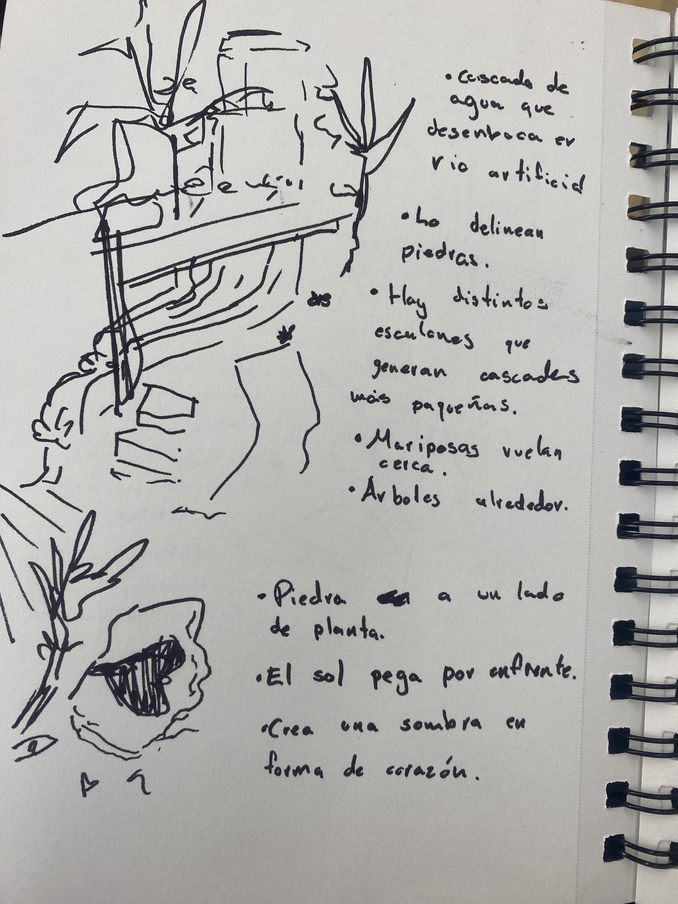 • Cascada de
agua que
desemboca en
rio artificial
• Lo delinean
piedras.
• Hay distintos
escalones que
generan cascadas
más pequeñas.
• Mariposas vuelan
cerca.
• Árboles alrededor.
• Piedra a un lado
de planta.
• El sol pega por enfrente.
• Crea una sombra en
forma de corazón.